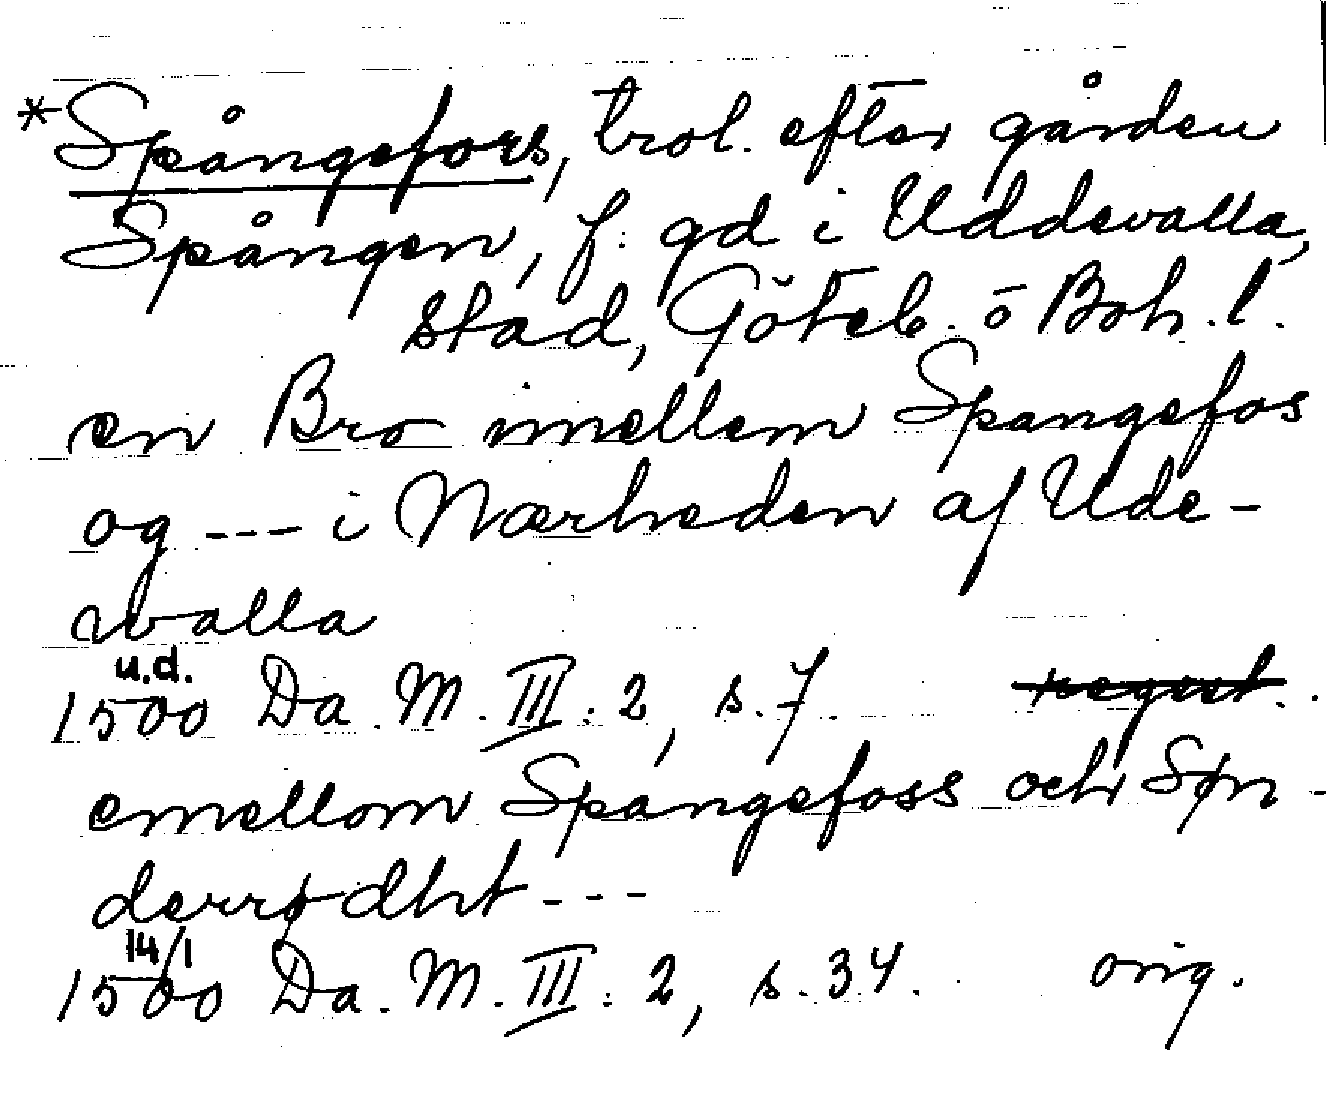 *Spångefors, trol. efter gården
Spången, f. gd i Uddevalla,
stad, Göteb. o Boh. l.
en Bro imellem Spangefos
og --- i Nærheden af Ude-
walla
u.d.
1500 Da. M. III. 2, s. 7 regist.
emellom Spangefoss och Søn-
derrødht ---
14/1
1500 Da. M. III. 2, s. 34. orig.